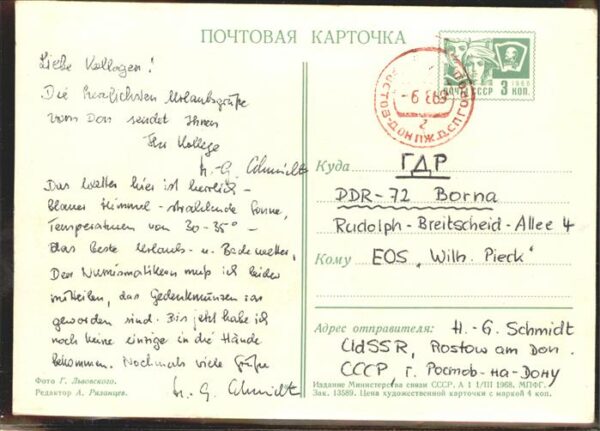 ПОЧТОВАЯ КАРТОЧКА
1966
ПОЧТА СССР 3 КОП.
РОСТОВ-ДОН ПЖ.Д.СП.ГОР
-6 8 69
Liebe Kollegen!
Die herzlichsten Urlaubsgrüße
vom Don sendet Ihnen
Ihr Kollege
H.-G. Schmidt
Das Wetter hier ist herrlich -
blauer Himmel - strahlende Sonne,
Temperaturen von 30-35° -
das beste Urlaubs- u. Badewetter,
Den Numismatikern muß ich leider
mitteilen, das Gedenkmünzen rar
geworden sind. Bis jetzt habe ich
noch keine einzige in die Hände
bekommen. Nochmals viele Grüße
H. G. Schmidt
Фото Г. Львовского.
Редактор А. Рязанцев.
Куда ГДР
DDR-72 Borna
Rudolph-Breitscheid-Allee 4
Кому EOS „Wilh. Pieck"
Адрес отправителя: H.-G. Schmidt
UdSSR, Rostow am Don.
СССР, г. Ростов-на-Дону
Издание Министерства связи СССР. А 1 1/III 1968. МПФГ.
Зак. 13589. Цена художественной карточки с маркой 4 коп.